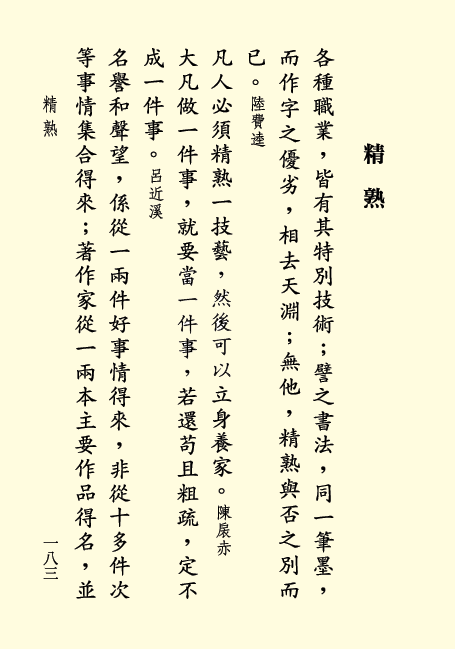 精熟
各種職業，皆有其特別技術；譬之書法，同一筆墨，
而作字之優劣，相去天淵；無他，精熟與否之別而
已。陸費逵
凡人必須精熟一技藝，然後可以立身養家。陳扆赤
大凡做一件事，就要當一件事，若還苟且粗疏，定不
成一件事。呂近溪
名譽和聲望，係從一兩件好事情得來，非從十多件次
等事情集合得來；著作家從一兩本主要作品得名，並
精熟
一八三